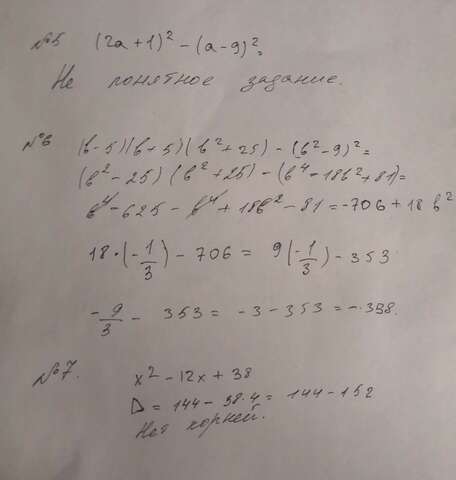 №5 (2a+1)² - (a-9)² =
Не понятное задание.
№6 (b-5)(b+5)(b²+25) - (b²-9)² =
(b²-25)(b²+25) - (b⁴-18b²+81) =
b⁴ - 625 - b⁴ + 18b² - 81 = -706 + 18b²
18 · (-1/3) - 706 = 9(-1/3) - 353
-9/3 - 353 = -3 - 353 = -338.
№7. x² - 12x + 38
D = 144 - 38·4 = 144 - 152
Нет корней.